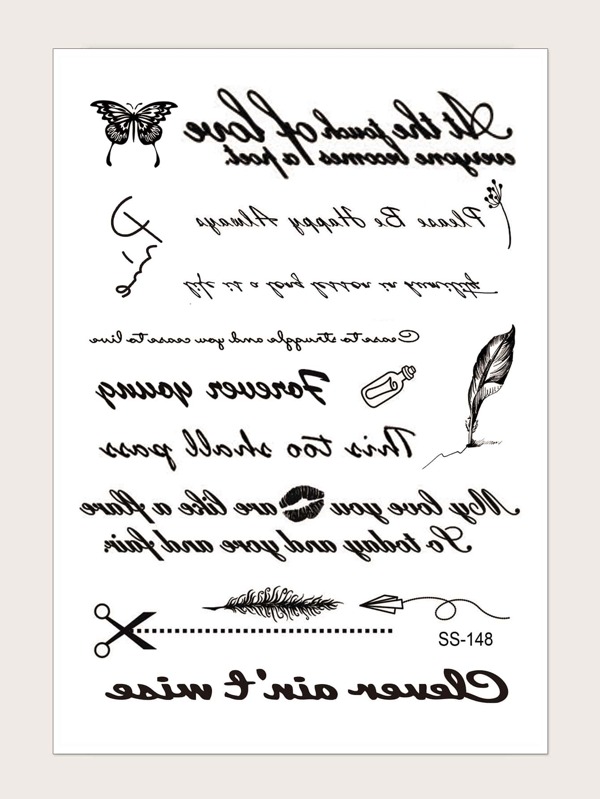 At the touch of love
everyone becomes a poet.
Please Be Happy Always
Cease to struggle and you cease to live
Forever young
This too shall pass
My love you are like a flare
So today and yore and fair.
SS-148
Clever ain't wise